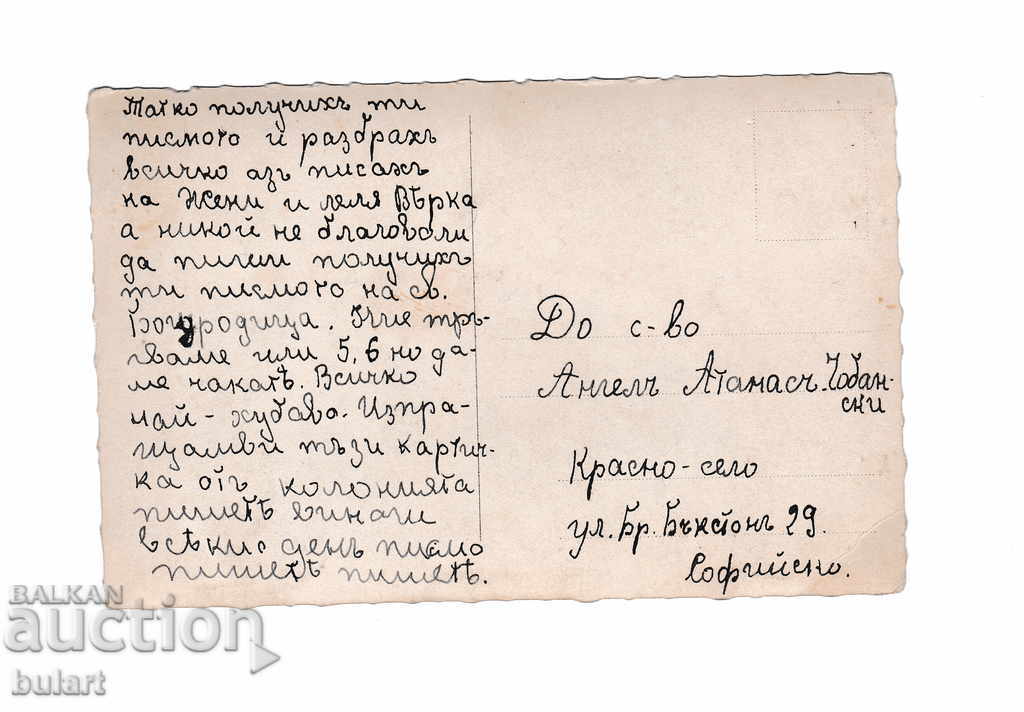 Татко получихъ ти
писмото и разбрахъ
всичко азъ писахъ
на Жени и леля Вѣрка
а никой не благоволи
да пише получихъ
ти писмото на св.
Богородица. Ние тръ-
гваме или 5, 6 но да
ме чакатѣ. Всичко
най-хубаво. Изпра-
щамви тъзи картич-
ка отъ колонията
пишетѣ винаги
всѣки день писмо
пишетѣ пишетѣ.
До с-во
Ангелъ Атанасъ Чобан-
ски
Красно-село
ул. Бр. Бъкстонъ 29.
Софийско.
BALKAN
auction
bulart